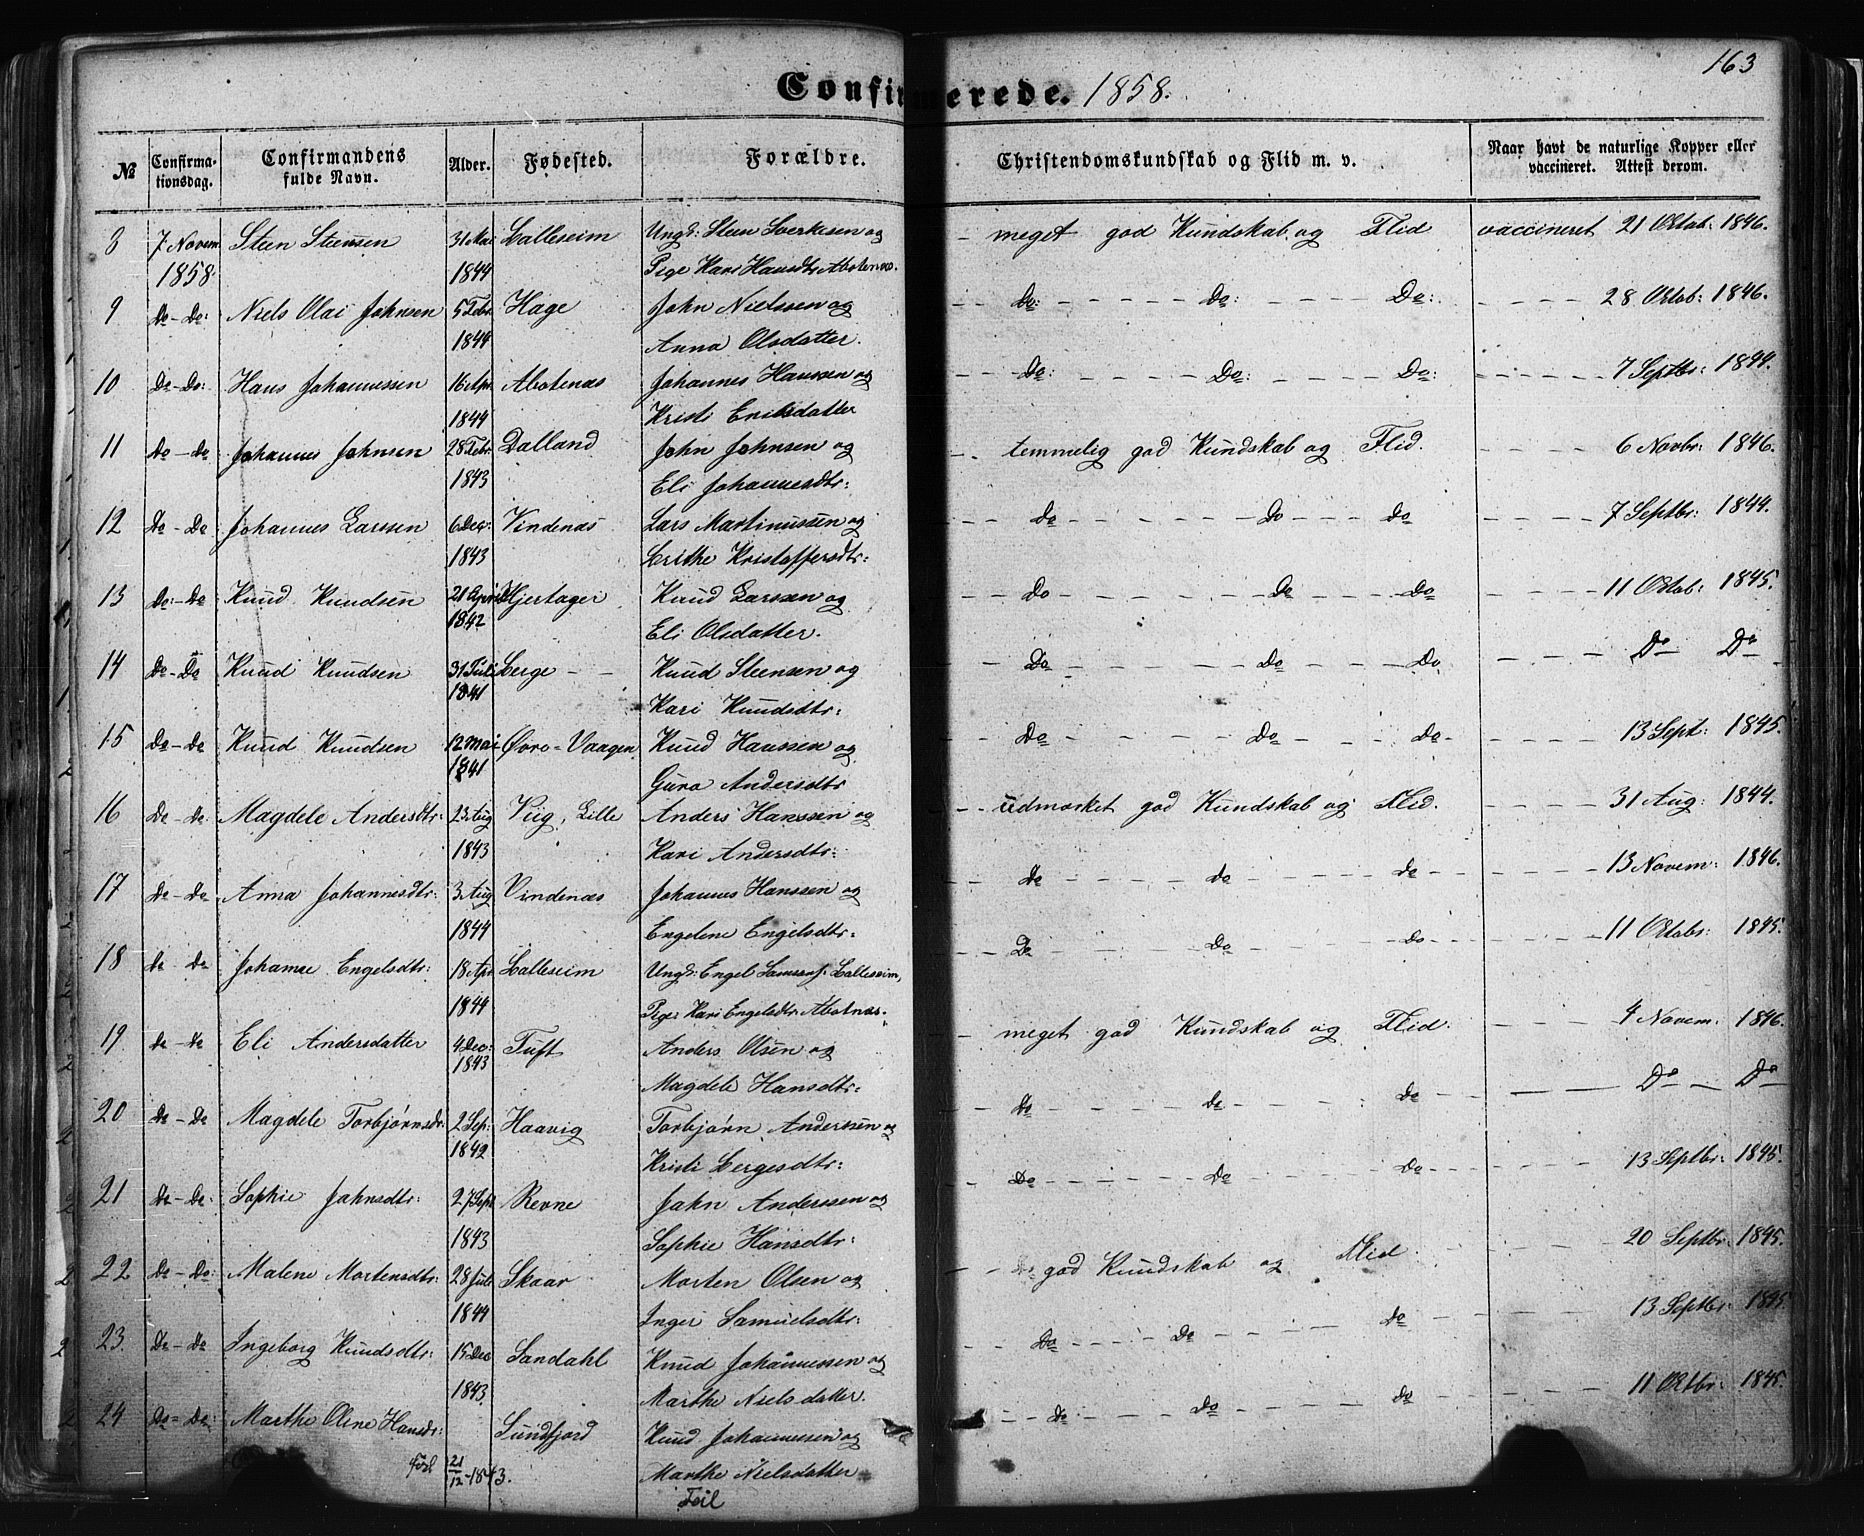 163
Confirmerede. 1858.
№ Confirma-tionsdag. Confirmandens fulde Navn. Alder. Fødested. Forældre. Christendomskundskab og Flid m. v. Naar havt de naturlige Kopper eller vaccineret. Attest derom.
8 7 Novem Steen Steensen 31 Mai Balleseim Ungk: Steen Sverkesen og - meget god Kundskab og Flid vaccineret 21 Octob: 1846.
1858. 1844 Pige Kari Hansdtr Abotenæs.
9 Do - Do: Niels Olai Johnsen 5 Febr Hage John Nielsen og Do: Do: Do: 28 Octob: 1846.
1844 Anna Olsdatter.
10 Do - Do: Hans Johannessen 16 Apr Abotenæs Johannes Hanssen og Do: Do: Do: 7 Septbr: 1844.
1844 Kristi Eriksdatter
11 Do - Do Johannes Johnsen 28 Febr. Dalland John Johnsen og temmelig god Kundskab og Flid. 6 Novbr: 1846.
1843 Eli Johannesdtr:
12 Do - Do Johannes Larssen 6 Dec: Vindenæs Lars Martinussen og Do Do Do 7 Septbr: 1844.
1843 Brithe Kristoffersdtr:
13 Do - Do Knud Knudsen 21 April Hjertager Knud Larssen og Do Do Do 11 Octob: 1845.
1842 Eli Olsdatter.
14 Do - Do Knud Knudsen 31 Juli Berge - - Knud Steensen og Do Do Do Do Do
1841 Kari Knudsdtr:
15 Do - Do Knud Knudsen 12 Mai Øvre-Vaagen Knud Hanssen og Do Do Do 13 Sept: 1845.
1841 Guro Andersdtr
16 Do - Do: Magdele Andersdtr: 23 Aug Viig, Lille Anders Hanssen og - udmærket god Kundskab og Flid. 31 Aug: 1844.
1843 Kari Andersdtr:
17 Do - Do: Anna Johannesdtr: 3 Aug Vindenæs Johannes Hanssen og Do Do Do 13 Novem: 1846.
1844 Engelene Engelsdtr:
18 Do - Do Johanne Engelsdtr: 18 Apr Balleseim Ungk: Engel Samsens. Balleseim, Do Do Do 11 Octobr: 1845.
1844 Pige Kari Engelsdtr: Abotnæs.
19 Do - Do Eli Andersdatter 4 Dec: Tuft Anders Olsen og - meget god Kundskab og Flid: 4 Novem: 1846.
1843 Magdele Hansdtr:
20 Do - Do Magdele Torbjørnsdr: 2 Sep: Haavig Torbjørn Anderssen og Do Do Do Do Do
1842 Kristi Bergesdtr:
21 Do - Do: Sophie Johnsdtr: 27 Sept Revne John Anderssen og Do Do Do 13 Septbr: 1845.
1843 Sophie Hansdtr:
22 Do - Do: Malene Mortensdtr: 28 Juli Skaar Morten Olsen og god Kundskab og Flid. 20 Septbr: 1845.
1844 Inger Samuelsdtr:
23. Do - Do Ingeborg Knudsdtr: 15 Dec Sandahl Knud Johannessen og Do Do Do 13 Septbr: 1845.
1843. Marthe Nielsdatter.
24 Do - Do: Marthe Oline Hansdr: Sundfjord Knud Johannessen og Do Do Do 11 Octbr: 1845.
født 21/12-1843. Marthe Nielsdatter
Feil